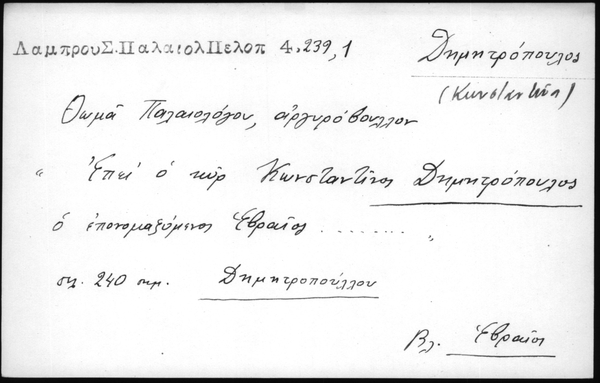 ΛαμπρουΣ.ΠαλαιολΠελοπ 4,239,1
Δημητρόπουλος
(Κωνσταντῖνος)
Θωμᾶ Παλαιολόγου, ἀργυρόβουλλον
" Ἐπεὶ ὁ κῦρ Κωνσταντῖνος Δημητρόπουλος
ὁ ἐπονομαζόμενος Ἑβραῖος ........ "
σελ. 240 σημ. Δημητροπούλλου
Βλ. Ἑβραῖος